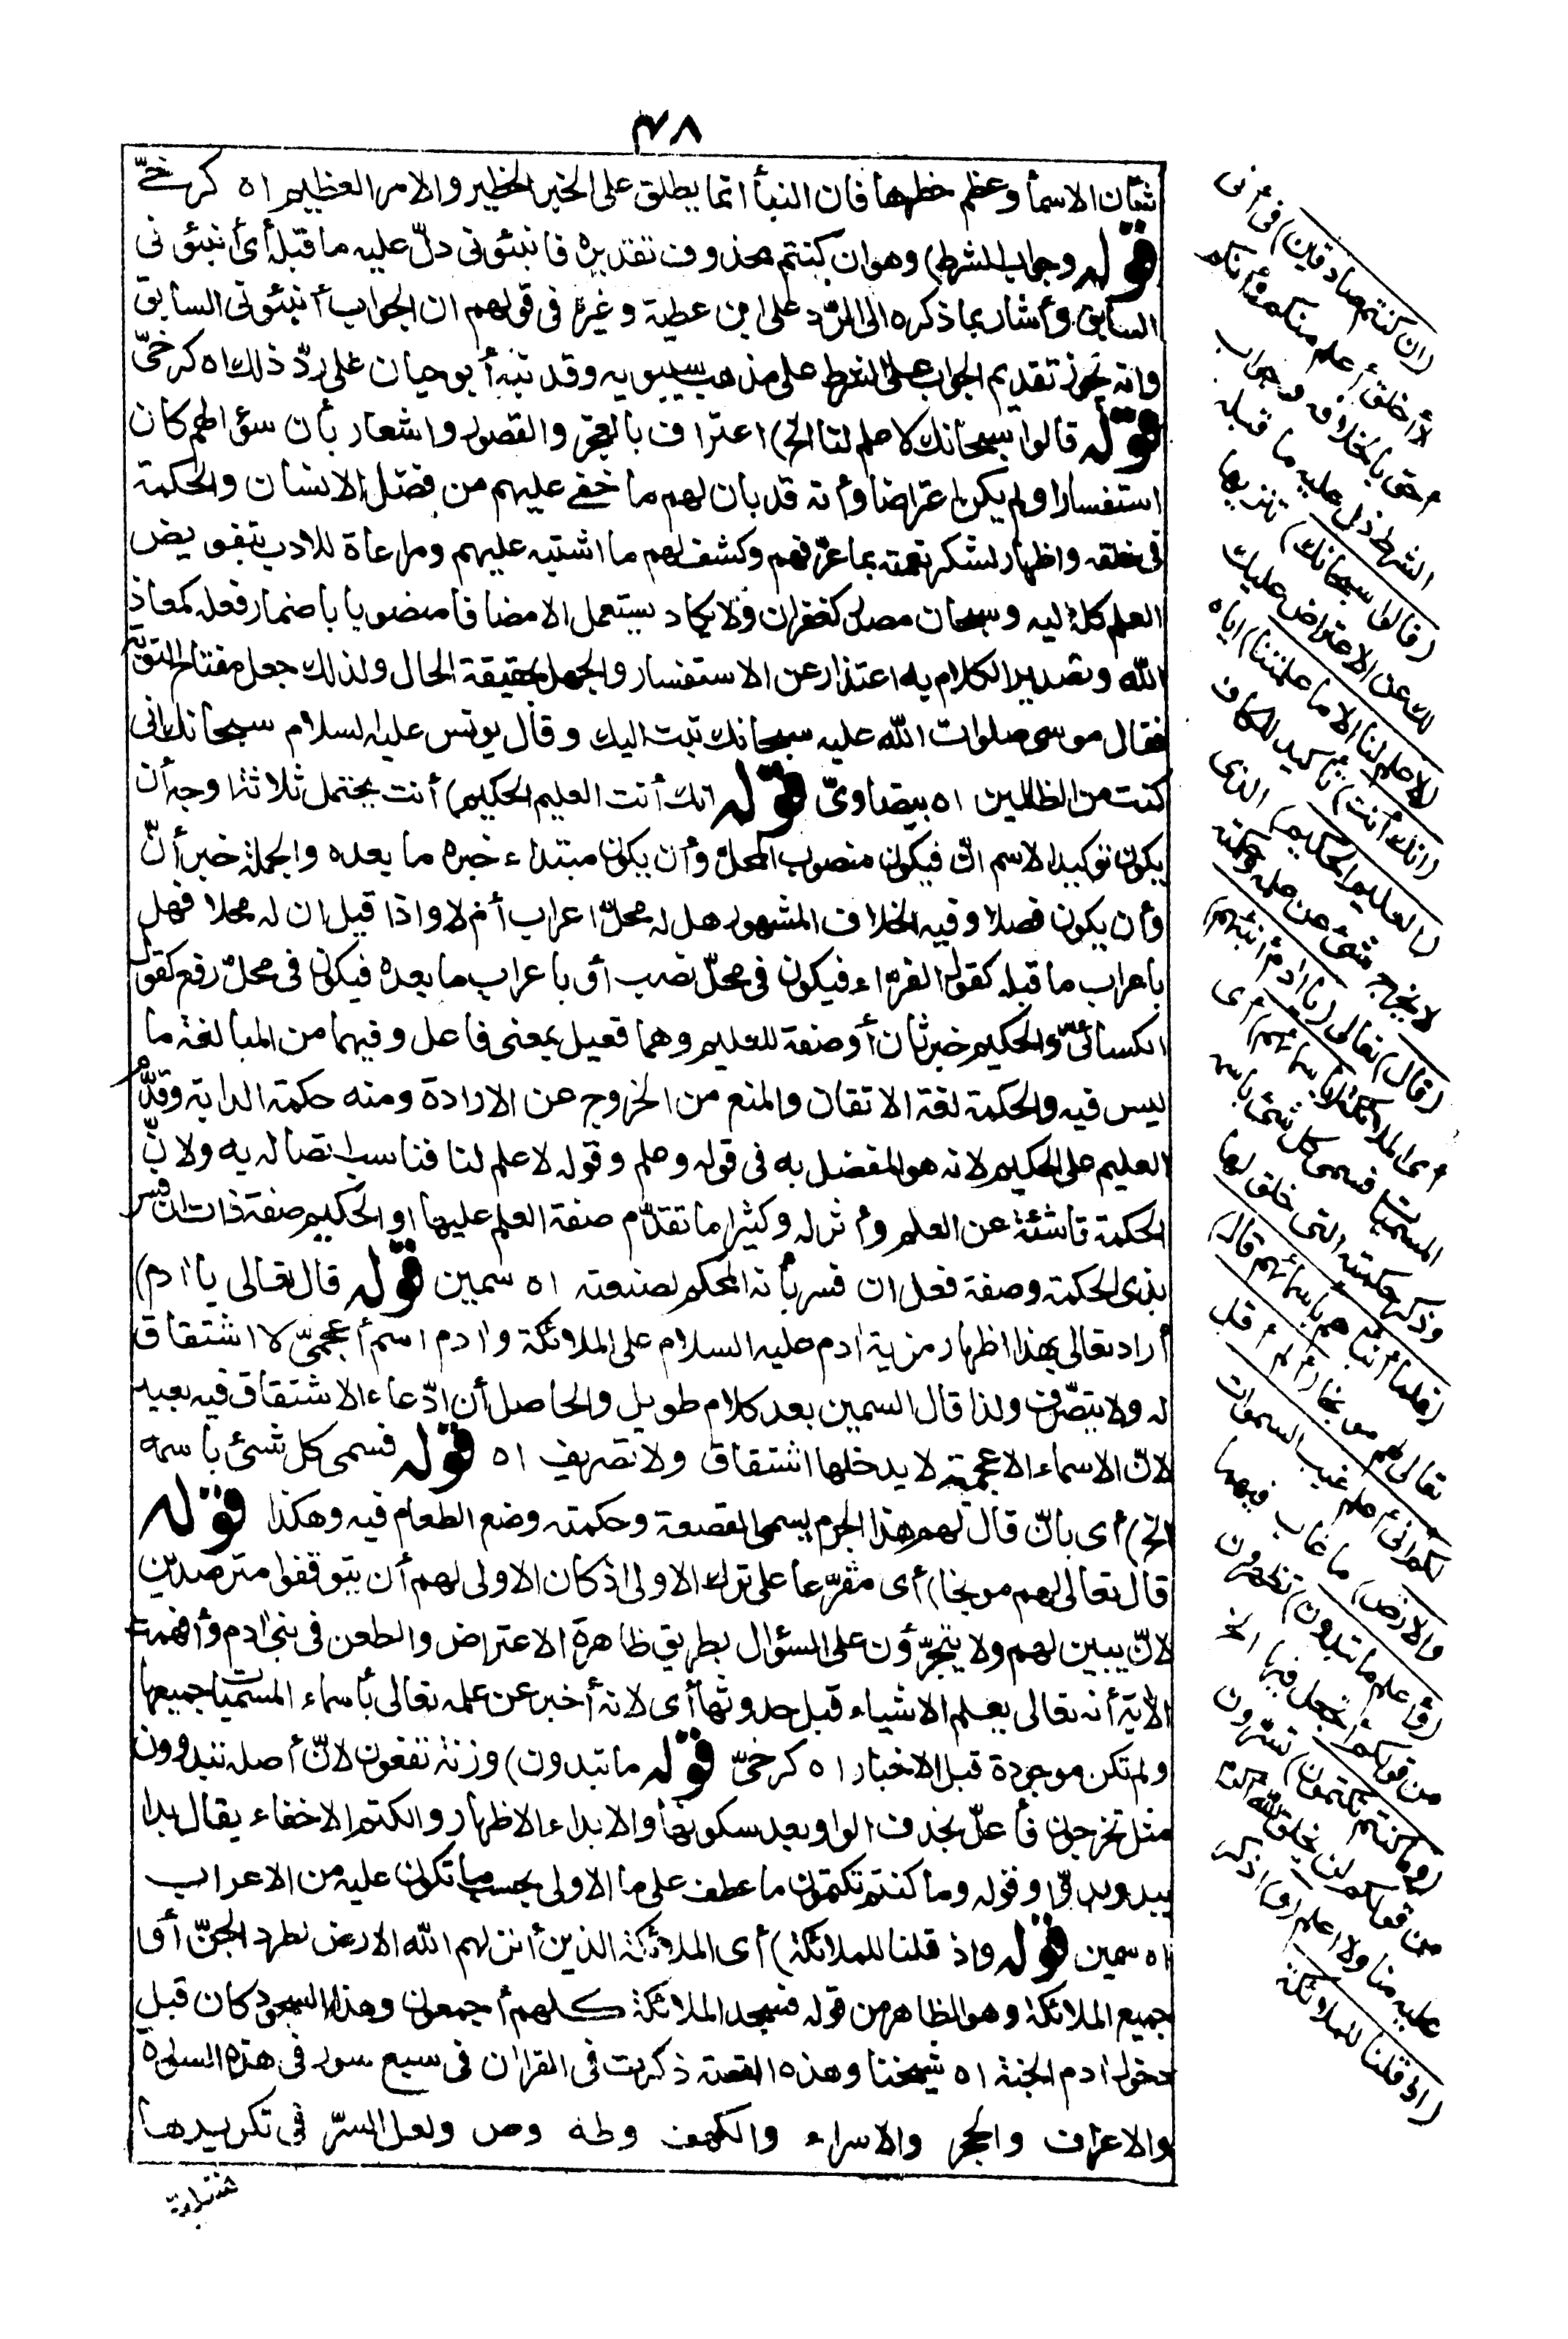 ٣٨
شأن الاسماء وعظم خطرها فان النبأ انما يطلق على الخبر الخطير والامر العظيم اه كرخىّ
قوله وجواب الشرط) وهو ان كنتم محذوف تقديره فانبئونى دلّ عليه ما قبله أى أنبئونى
السابق وأشار بما ذكره الى الردّ على ابن عطية وغيره فى قولهم ان الجواب أنبئونى السابق
وانه يجوز تقديم الجواب على الشرط على مذهب سيبويه وقد نبه أبو حيان على ردّ ذلك اه كرخىّ
قوله قالوا سبحانك لا علم لنا الخ) اعتراف بالعجز والقصور واشعار بأن سؤالهم كان
استفسارا ولم يكن اعتراضا وأنه قد بان لهم ما خفى عليهم من فضل الانسان والحكمة
فى خلقه واظهار لشكر نعمته بما عرّفهم وكشف لهم ما اشتبه عليهم ومراعاة للادب بتفويض
العلم كله اليه وسبحان مصدر كغفران ولا يكاد يستعمل الا مضافا منصوبا باضمار فعله كمعاذ
الله وتصدير الكلام به اعتذار عن الاستفسار والجهل بحقيقة الحال ولذلك جعل مفتاح التوبة
فقال موسى صلوات الله عليه سبحانك تبت اليك وقال يونس عليه السلام سبحانك انى
كنت من الظالمين اه بيضاوىّ قوله انك أنت العليم الحكيم) أنت يحتمل ثلاثة اوجه أن
يكون توكيدا لاسم انّ فيكون منصوب المحلّ وأن يكون مبتداء خبره ما بعده والجملة خبر أنّ
وأن يكون فصلا وفيه الخلاف المشهور هل له محلّ اعراب أم لا واذا قيل ان له محلا فهل
باعراب ما قبله كقول الفرّاء فيكون فى محلّ نصب أو باعراب ما بعده فيكون فى محلّ رفع كقول
الكسائىّ والحكيم خبر ثان أو صفة للعليم وهما فعيل بمعنى فاعل وفيهما من المبالغة ما
ليس فيه والحكمة لغة الاتقان والمنع من الخروج عن الارادة ومنه حكمة الدابة وقدّم
العليم على الحكيم لانه هو المفضل به فى قوله وعلم وقوله لا علم لنا فناسب اتصاله به ولانّ
الحكمة ناشئة عن العلم وأثر له وكثيرا ما تقدّم صفة العلم عليها او الحكيم صفة ذات ان فسر
بذى الحكمة وصفة فعل ان فسر بأنه المحكم لصنعته اه سمين قوله قال تعالى يا ادم)
أراد تعالى بهذا اظهار مزية ادم عليه السلام على الملائكة وادم اسم أعجمىّ لا اشتقاق
له ولا يتصّرف ولذا قال السمين بعد كلام طويل والحاصل أن ادّعاء الاشتقاق فيه بعيد
لانّ الاسماء الاعجمية لا يدخلها اشتقاق ولا تصريف اه قوله فسمى كل شئ باسمه
الخ) أى بانّ قال لهم هذا الجرم يسمى القصعة وحكمته وضع الطعام فيه وهكذا قوله
قال تعالى لهم موبخا) أى مقرّعا على ترك الاولى اذ كان الاولى لهم أن يتوقفوا مترصدين
لانّ يبين لهم ولا يتجرّؤن على السؤال بطريق ظاهرة الاعتراض والطعن فى بنى ادم وأفهمت
الاية أنه تعالى يعلم الاشياء قبل حدوثها أى لانه أخبر عن علمه تعالى بأسماء المسميات جميعها
ولم تكن موجودة قبل الاخبار اه كرخىّ قوله ما تبدون) وزنه تفعون لانّ أصله تبدوون
مثل تخرجون فأعلّ بحذف الواو بعد سكونها والابداء الاظهار والكتم الاخفاء يقال بدا
يبدو وقوله وما كنتم تكتمون ما عطف على ما الاولى بحسب ما تكون عليه من الاعراب
اه سمين قوله واذ قلنا للملائكة) أى الملائكة الذين أنزلهم الله الارض لطرد الجنّ أو
جميع الملائكة وهو الظاهر من قوله فسجد الملائكة كلهم أجمعون وهذا السجود كان قبل
دخول ادم الجنة اه شيخنا وهذه القصة ذكرت فى القران فى سبع سور فى هذه السورة
والاعراف والحجر والاسراء والكهف وطه وص ولعل السرّ فى تكريرها
(ان كنتم صادقين) فى أنى
لا أخلق أعلم منكم أو أنكم
أحق بالخلافة وجواب
الشرط دل عليه ما قبله
(قالوا سبحانك) تنزيها
لك عن الاعتراض عليك
(لا علم لنا الا ما علمتنا) اياه
(انك أنت) تأكيد للكاف
(العليم الحكيم) الذى
لا يخرج شئ عن علمه وحكمته
(قال) تعالى (يا ادم أنبئهم)
أى الملائكة (باسمائهم) أى
المسميات فسمى كل شئ باسمه
وذكر حكمته التى خلق لها
(فلما أنبأهم باسمائهم قال)
تعالى لهم موبخا (ألم أقل
لكم انى أعلم غيب السموات
والارض) ما غاب فيهما
(وأعلم ما تبدون) تظهرون
من قولكم أتجعل فيها الخ
(وما كنتم تكتمون) تسرّون
من قولكم لن يخلق الله اكرم
عليه منا ولا اعلم (و) اذكر
(اذ قلنا للملائكة